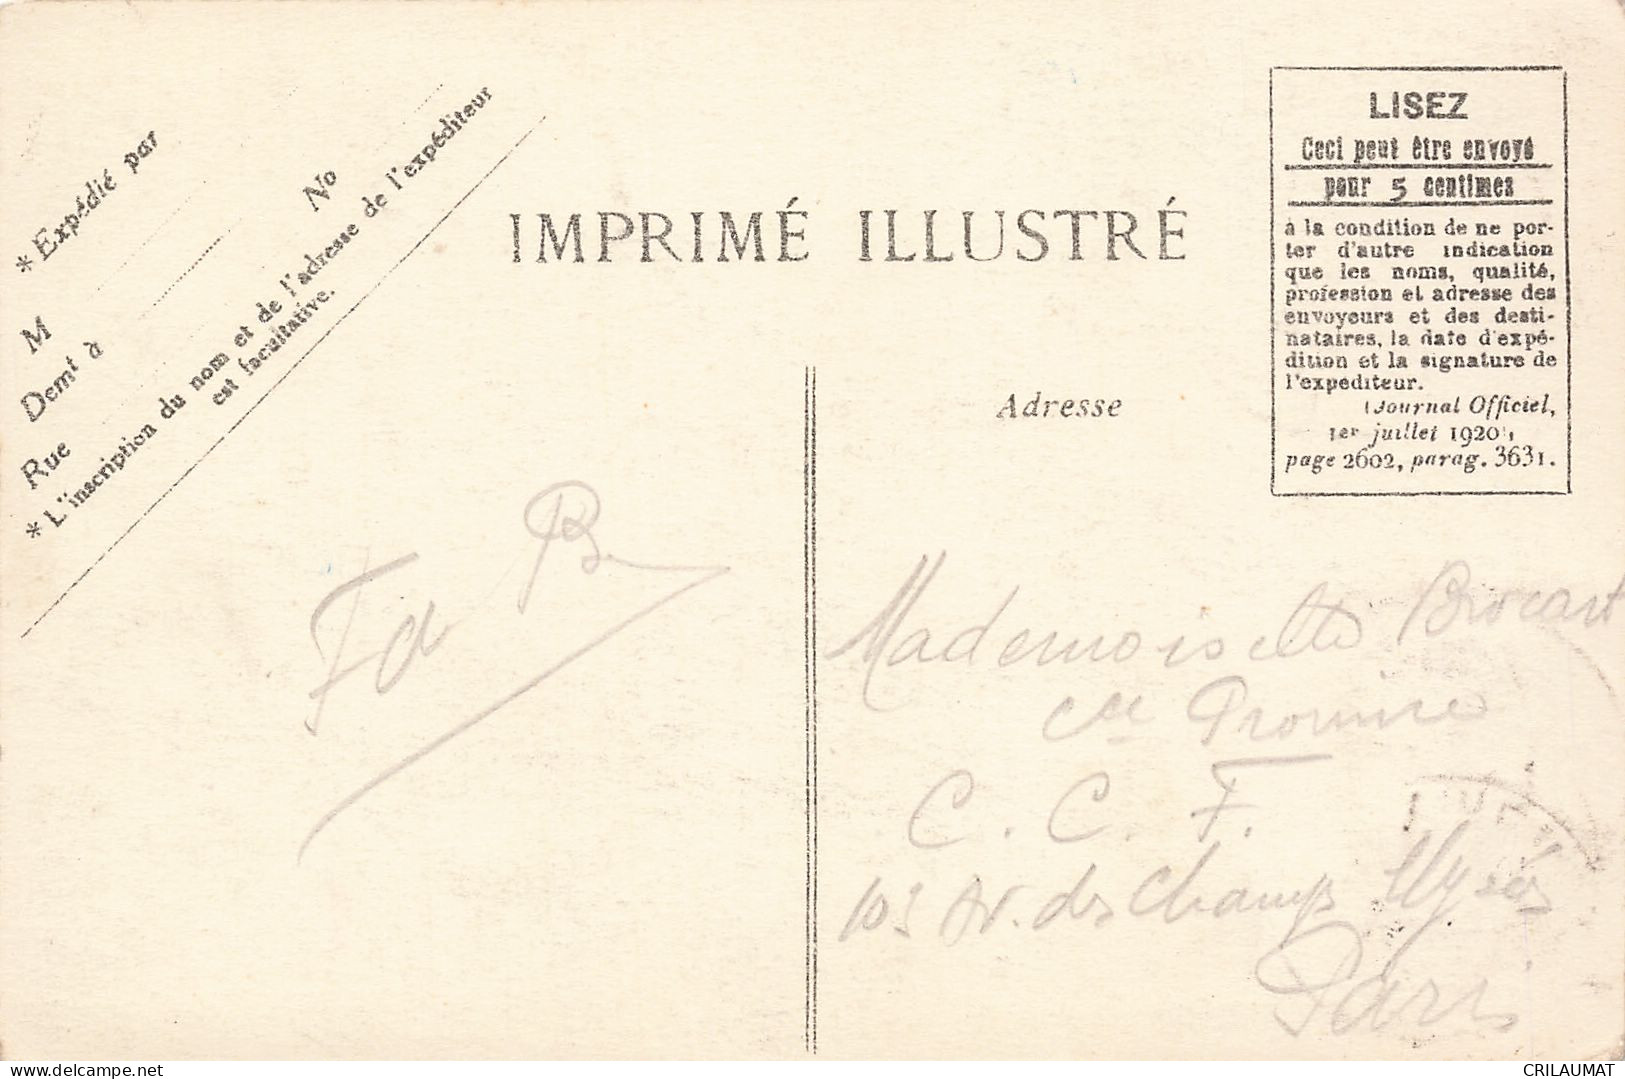 * Expédié par
M
No
Demt à
Rue
* L'inscription du nom et de l'adresse de l'expéditeur
est facultative.
IMPRIMÉ ILLUSTRÉ
LISEZ
Ceci peut être envoyé
pour 5 centimes
à la condition de ne por-
ter d'autre indication
que les noms, qualité,
profession et adresse des
envoyeurs et des desti-
nataires, la date d'expé-
dition et la signature de
l'expéditeur.
(Journal Officiel,
1er juillet 1920),
page 2602, parag. 3631.
Adresse
B
Mademoiselle Brocart
Province
C. C. F.
103 Av. des Champs Elysées
Paris
CRILAUMAT